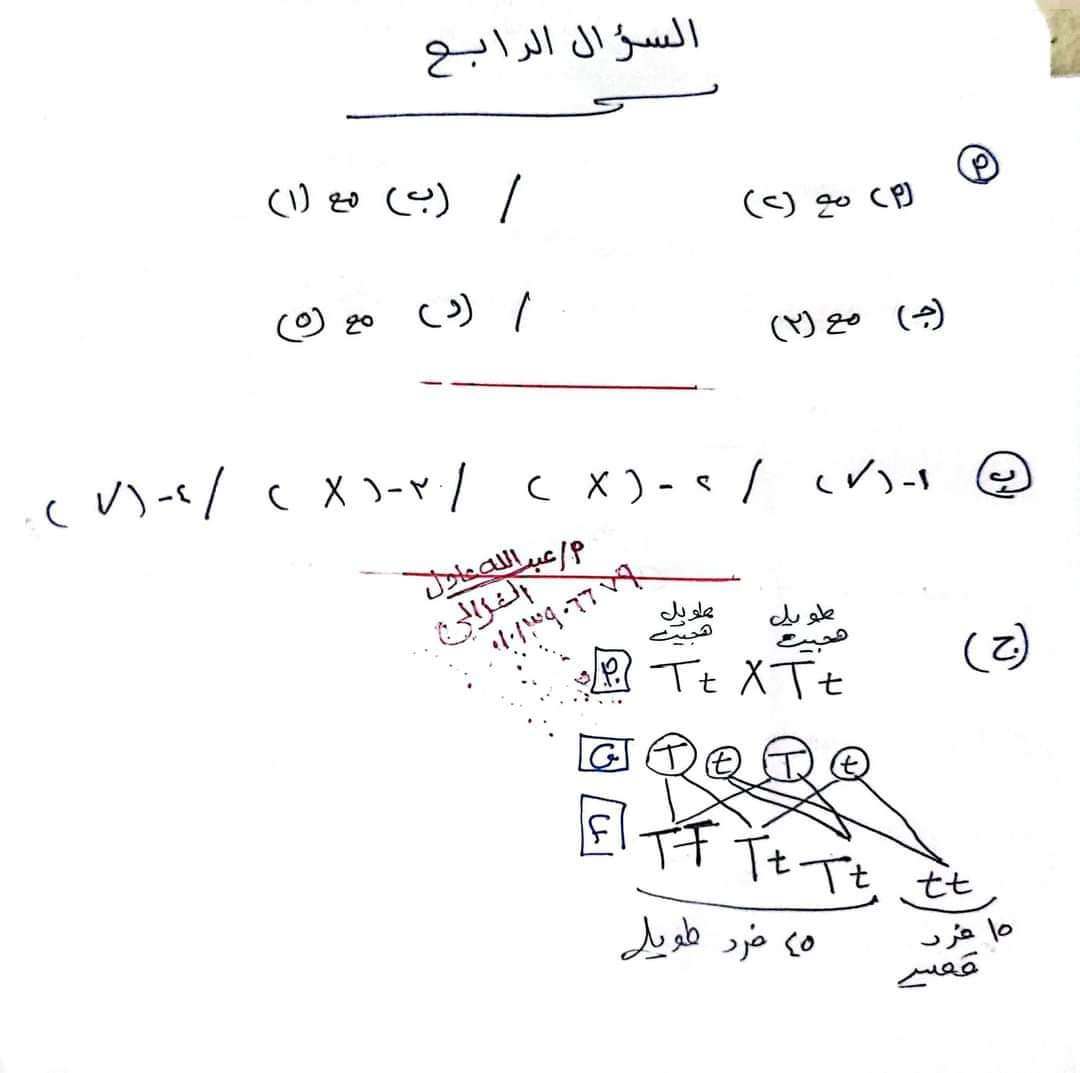 السؤال الرابع
(أ)
(أ) مع (ع) / (ب) مع (١)
(جـ) مع (٢) / (د) مع (٥)
(ب) ١- (✓) / ٢- (X) / ٣- (X) / ٤- (✓)
م/عبدالله عادل
الغزالي
(ج)
طويل طويل
هجين هجين
P Tt X Tt
G T t T t
F TT Tt Tt tt
٤٥ فرد طويل ١٥ فرد
قصير